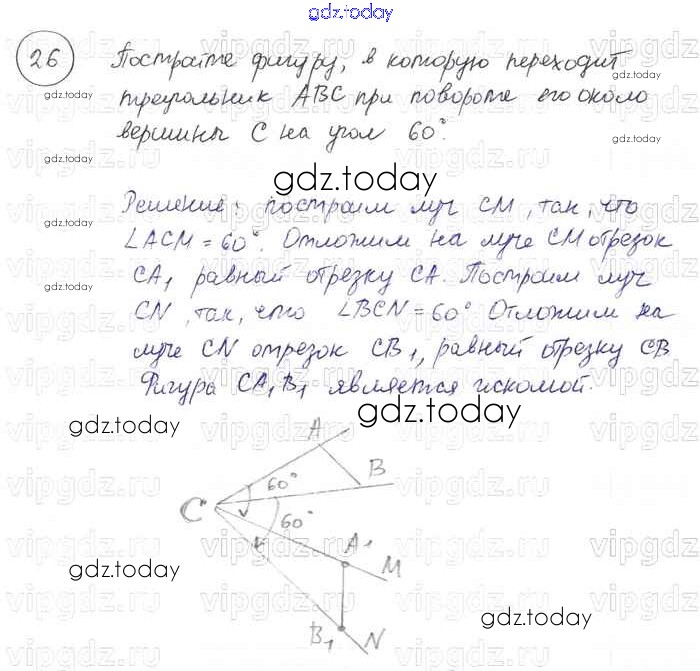 gdz.today
26 Постройте фигуру, в которую переходит
треугольник ABC при повороте его около
вершины C на угол 60°.
gdz.today
Решение: построим луч CM, так, что
∠ACM = 60°. Отложим на луче CM отрезок
CA₁ равный отрезку CA. Построим луч
CN, так, что ∠BCN = 60° Отложим на
луче CN отрезок CB₁, равный отрезку CB
Фигура CA₁B₁ является искомой.
gdz.today
gdz.today
A
B
60°
C
60°
A₁
M
gdz.today
B₁
N
gdz.today
vipgdz.ru